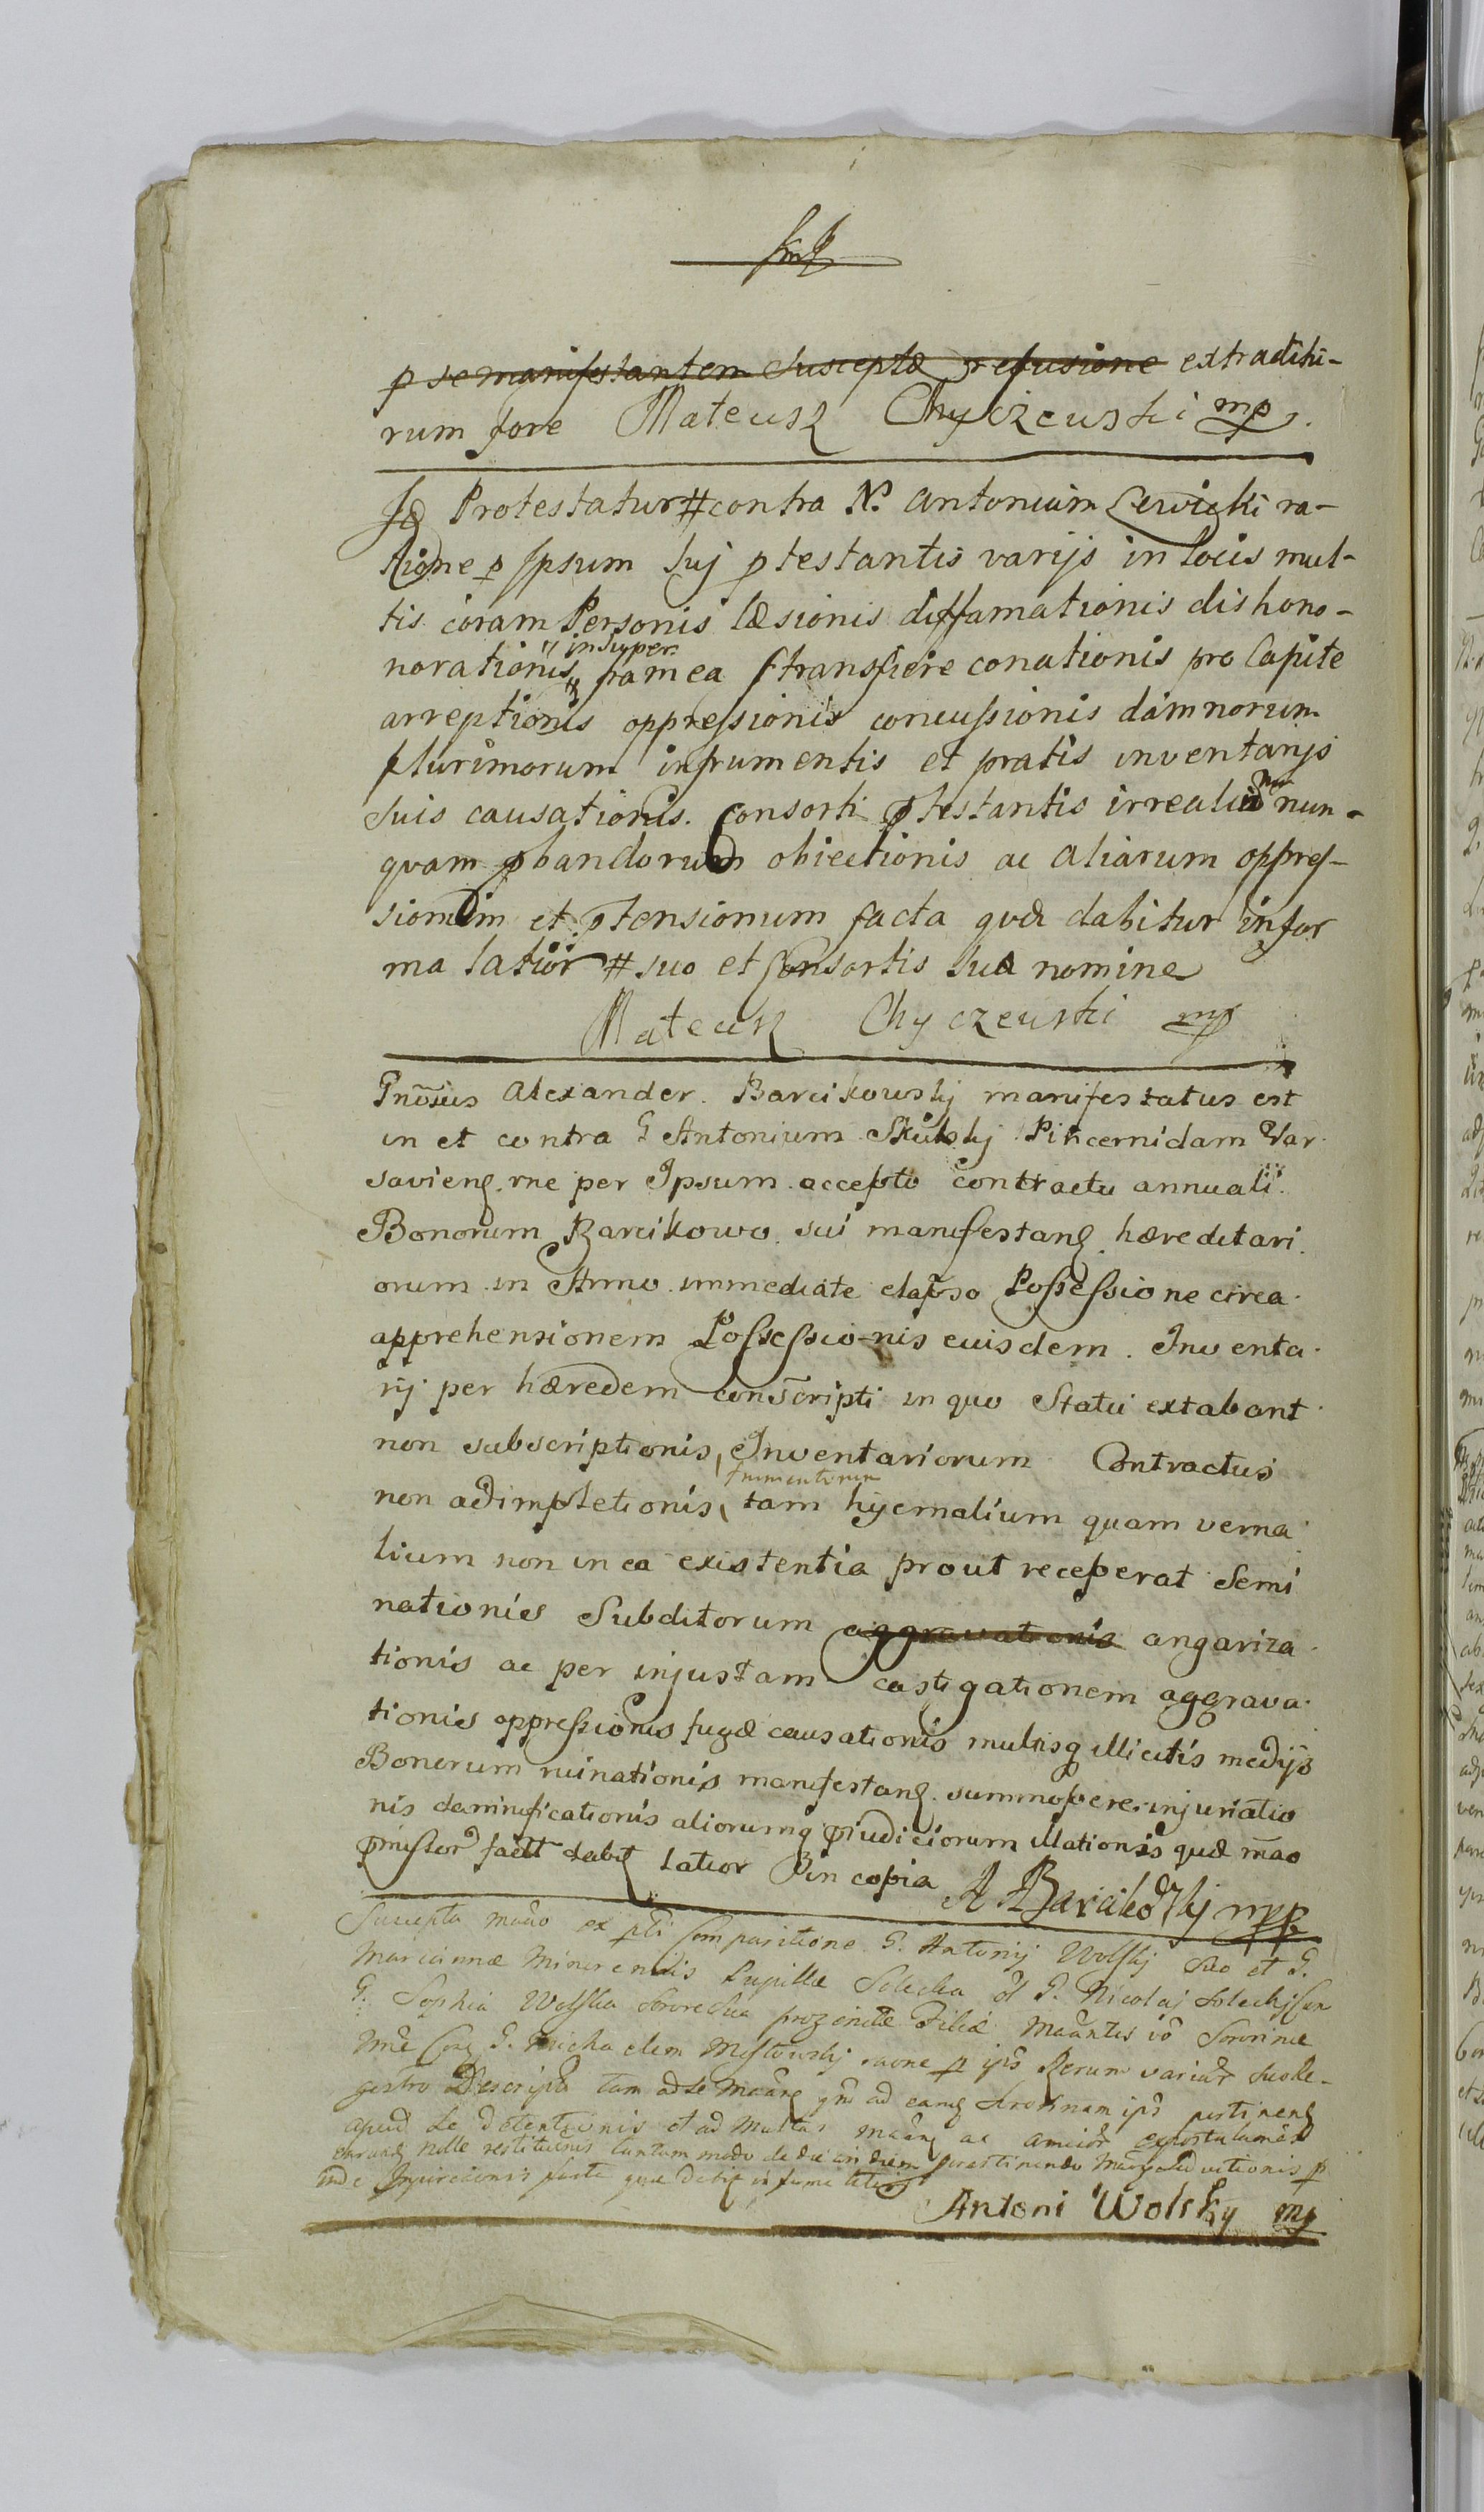 p se manifestantem susceptæ refusione extraditu-
rum fore Mateusz Chyczewski mp
Id Protestatur # contra N. Antonium Lewicki ra-
tione p Ipsum suj ptestantis varijs in locis mul-
tis coram Personis læsionis diffamationis dishono-
norationis, insuper framea transfigere conationis pro Capite
arreptionis oppressionis concussionis damnorum
plurimorum in frumentis et pratis inventarijs
suis causationis. Consorti ptestantis irrealium nun-
quam pbandorum obiectionis ac aliarum oppres-
sionum et ptensionum facta quæ dabitur in for
ma latiori # suo et Consortis suæ nomine
Mateusz Chyczewski mp
Gnosus Alexander Barcikowskj manifestatus est
in et contra G Antonium Skulskj Pincernidam Var
savieng. rne per Ipsum accepto contractu annuali
Bonorum Barcikowo sui manifestang hæreditari
orum in Anno immediate elapso Possessione circa
apprehensionem Possessionis euisdem Inventa
rij per hæredem conscripti in quo Statu extabant
non subscriptionis, Inventariorum Contractus
non adimpletionis, frumentorum tam hyemalium quam verna
lium non in ea existentia prout receperat Semi
nationis Subditorum aggravationis angariza
tionis ac per injustam castigationem aggrava
tionis oppressionis fugæ causationis multisq illicitis medijs
Bonorum ruinationis manifestang. summopere injuriatio
nis damnificationis aliorumq piudiciorum illationis quæ mao
facta dabit latior in copia A Barcikowskj mpp
Suscepta mao ex pti Comparitione G. Antonij Wolskj suo et G.
Mariannæ Minorennis Pupillæ Soleckæ ol G. Nicolaj Soleckj cum
G. Sophia Wolska Sorore sua progenitæ Filiæ Mantis vo Sororinæ
nne Cong G. Michaelem raone p ips Rerum variar suo Re-
gestro Descript tam ad se Mang qm ad eang Sororinam ips pertineng
apud se detentionis et ad Multas mang ac amicor expostulationes
earung nolle restitutionis tantum modo de die in diem
inde Injuriationis facta quæ dabit in forma latiori
Antoni Wolsky mp